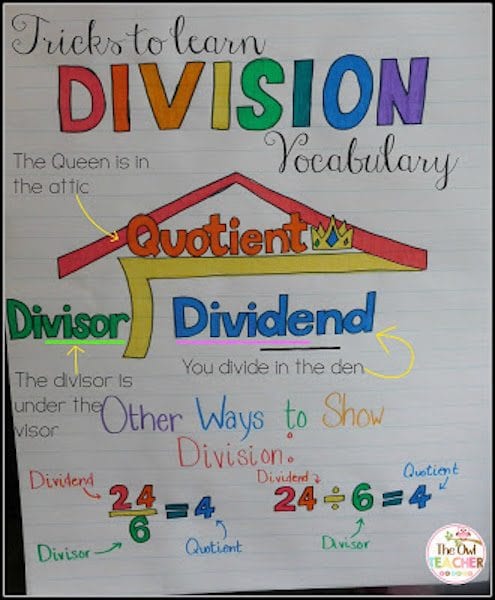 Tricks to learn
DIVISION
Vocabulary
The Queen is in
the attic
Quotient
Divisor
Dividend
You divide in the den
The divisor is
under the
visor
Other Ways to Show
Division:
Dividend
24
6
= 4
Divisor
Quotient
Dividend
Quotient
24 ÷ 6 = 4
Divisor
The Owl
TEACHER